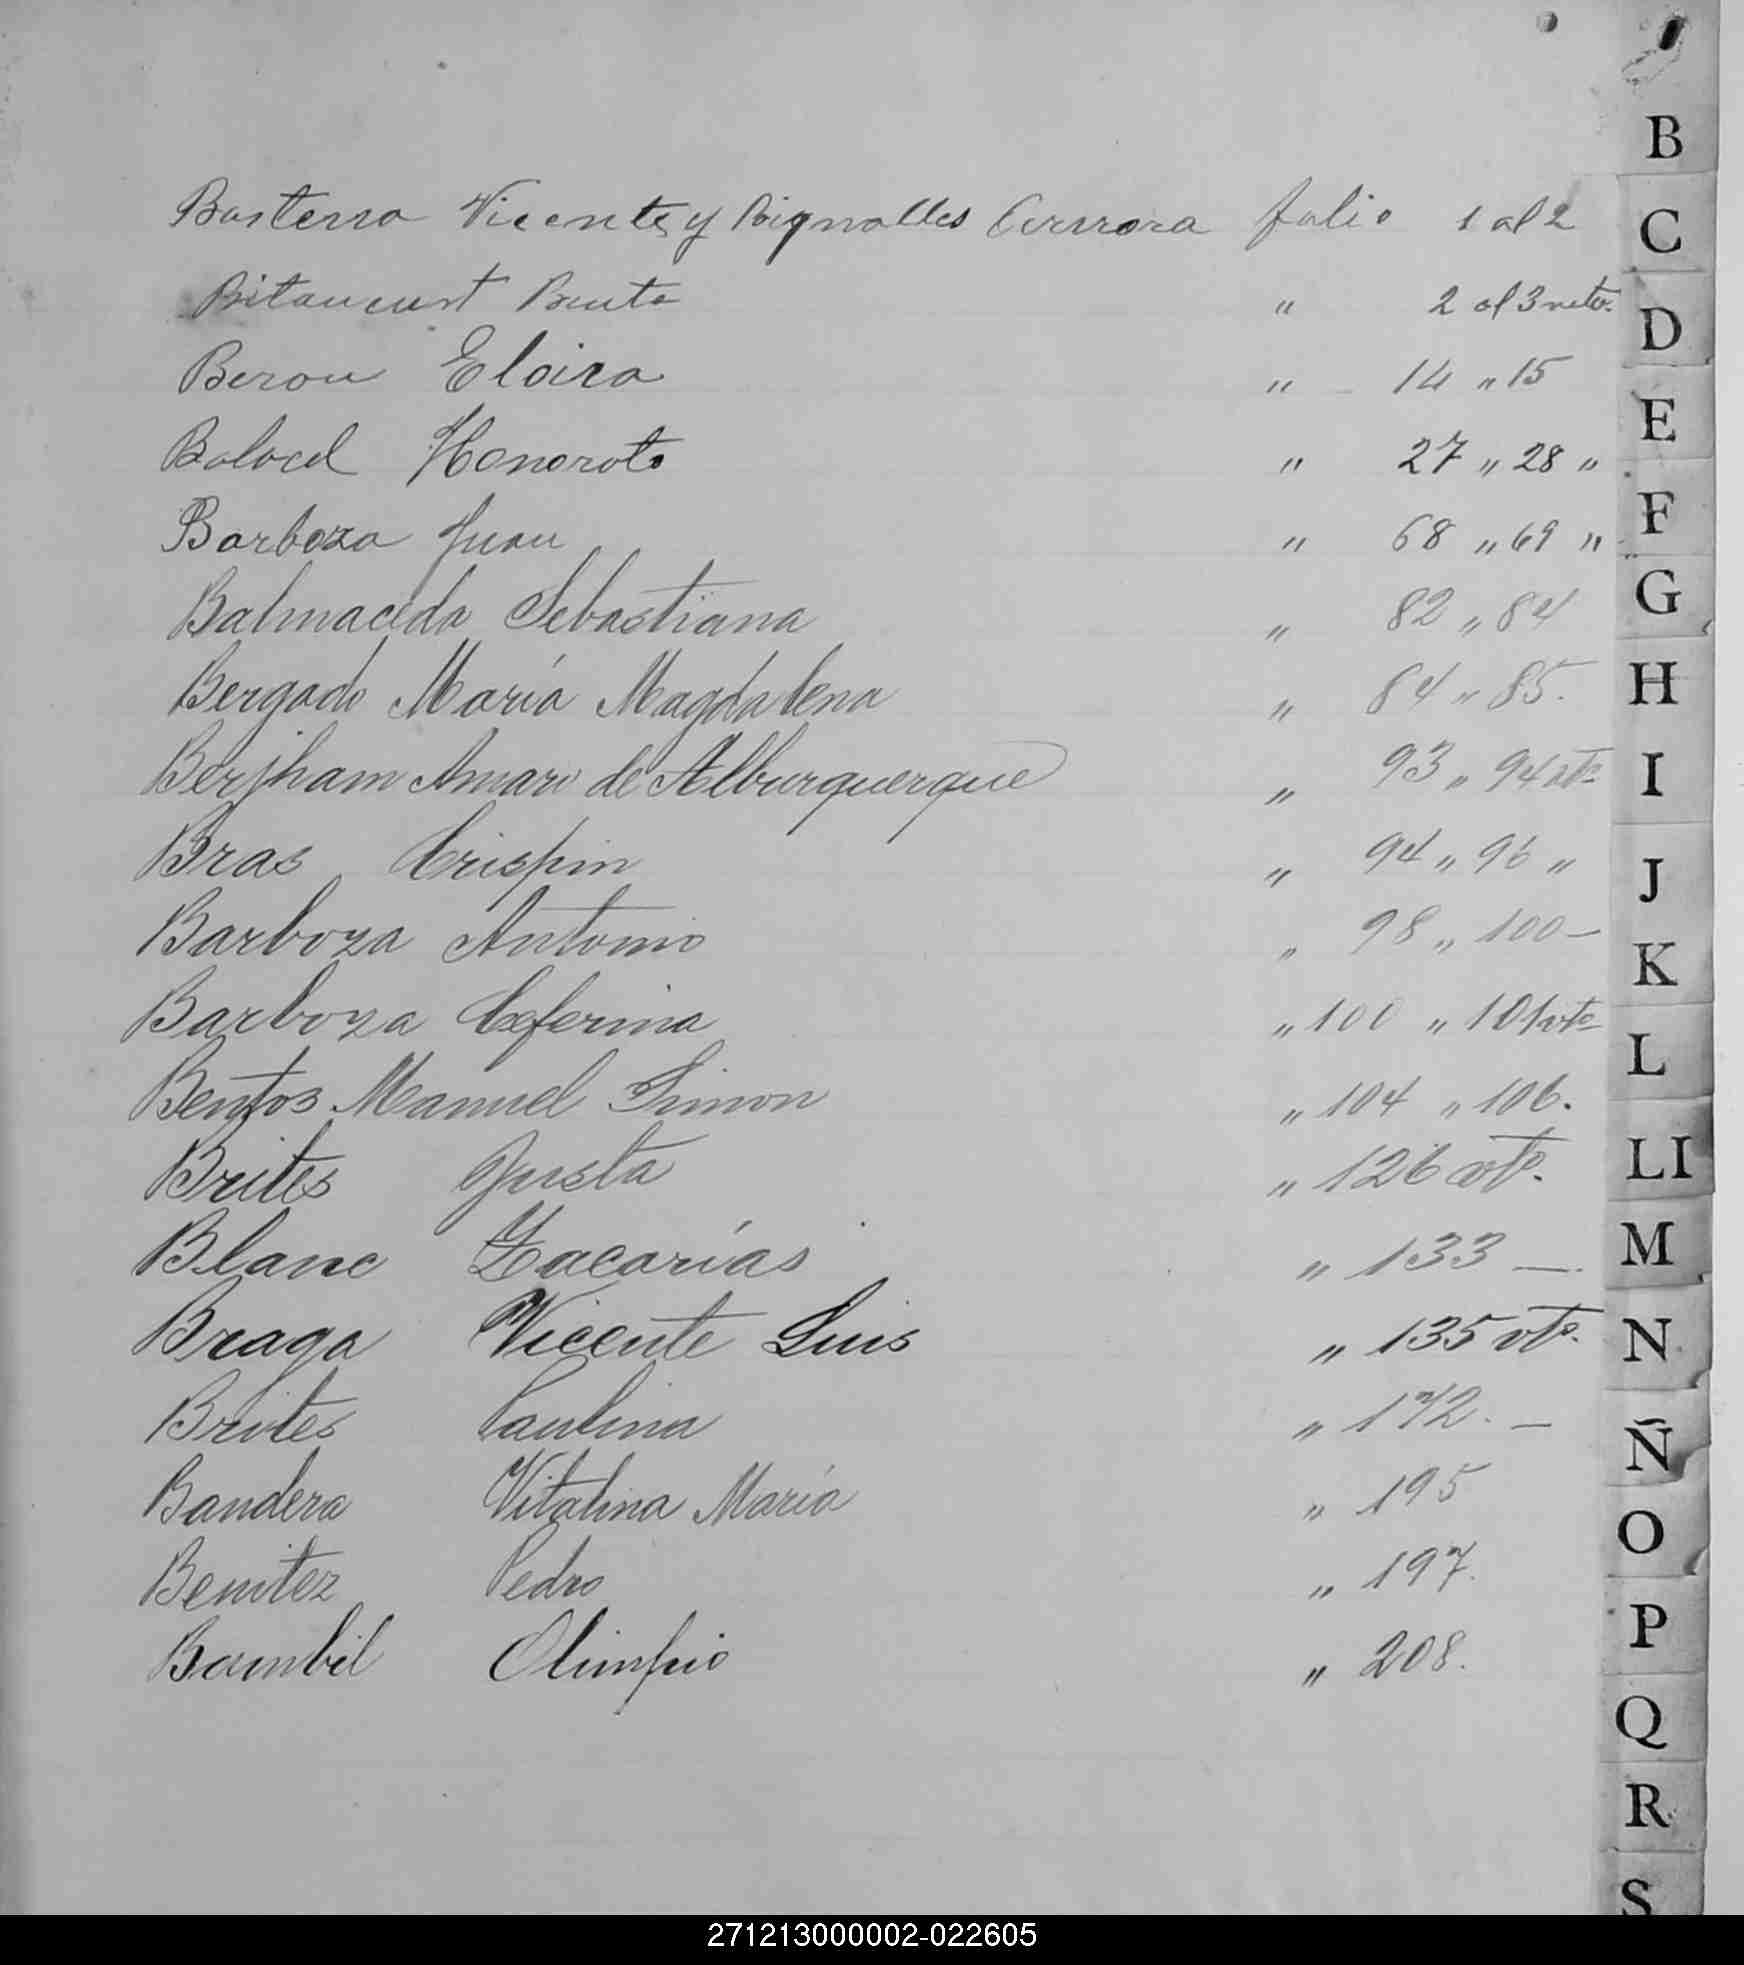 Basterra Vicente y Cerrora folio 1 al 2
Bitancurt Bento " 2 al 3 vto.
Berou Eloira " 14 " 15
Honorato " 27 " 28 "
Barboza Juan " 68 " 69 "
Balmaceda Sebastiana " 82 " 84
Bergado María Magdalena " 84 " 85.
Amaro de Alburquerque " 93 " 94 vto
Bras Crispin " 94 " 96 "
Barboza Antonio " 98 " 100 –
Barboza Ceferina " 100 " 101 vto
Bentos Manuel Simon " 104 " 106.
Brites Justa " 126 vto.
Blanc Zacarías " 133 —
Braga Vicente Luis " 135 vto.
Brites Paulina " 142. –
Bandera Vitalina María " 195
Benitez Pedro " 197.
Bambil Olimpio " 208.
B
C
D
E
F
G
H
I
J
K
L
Ll
M
N
Ñ
O
P
Q
R
S
271213000002-022605